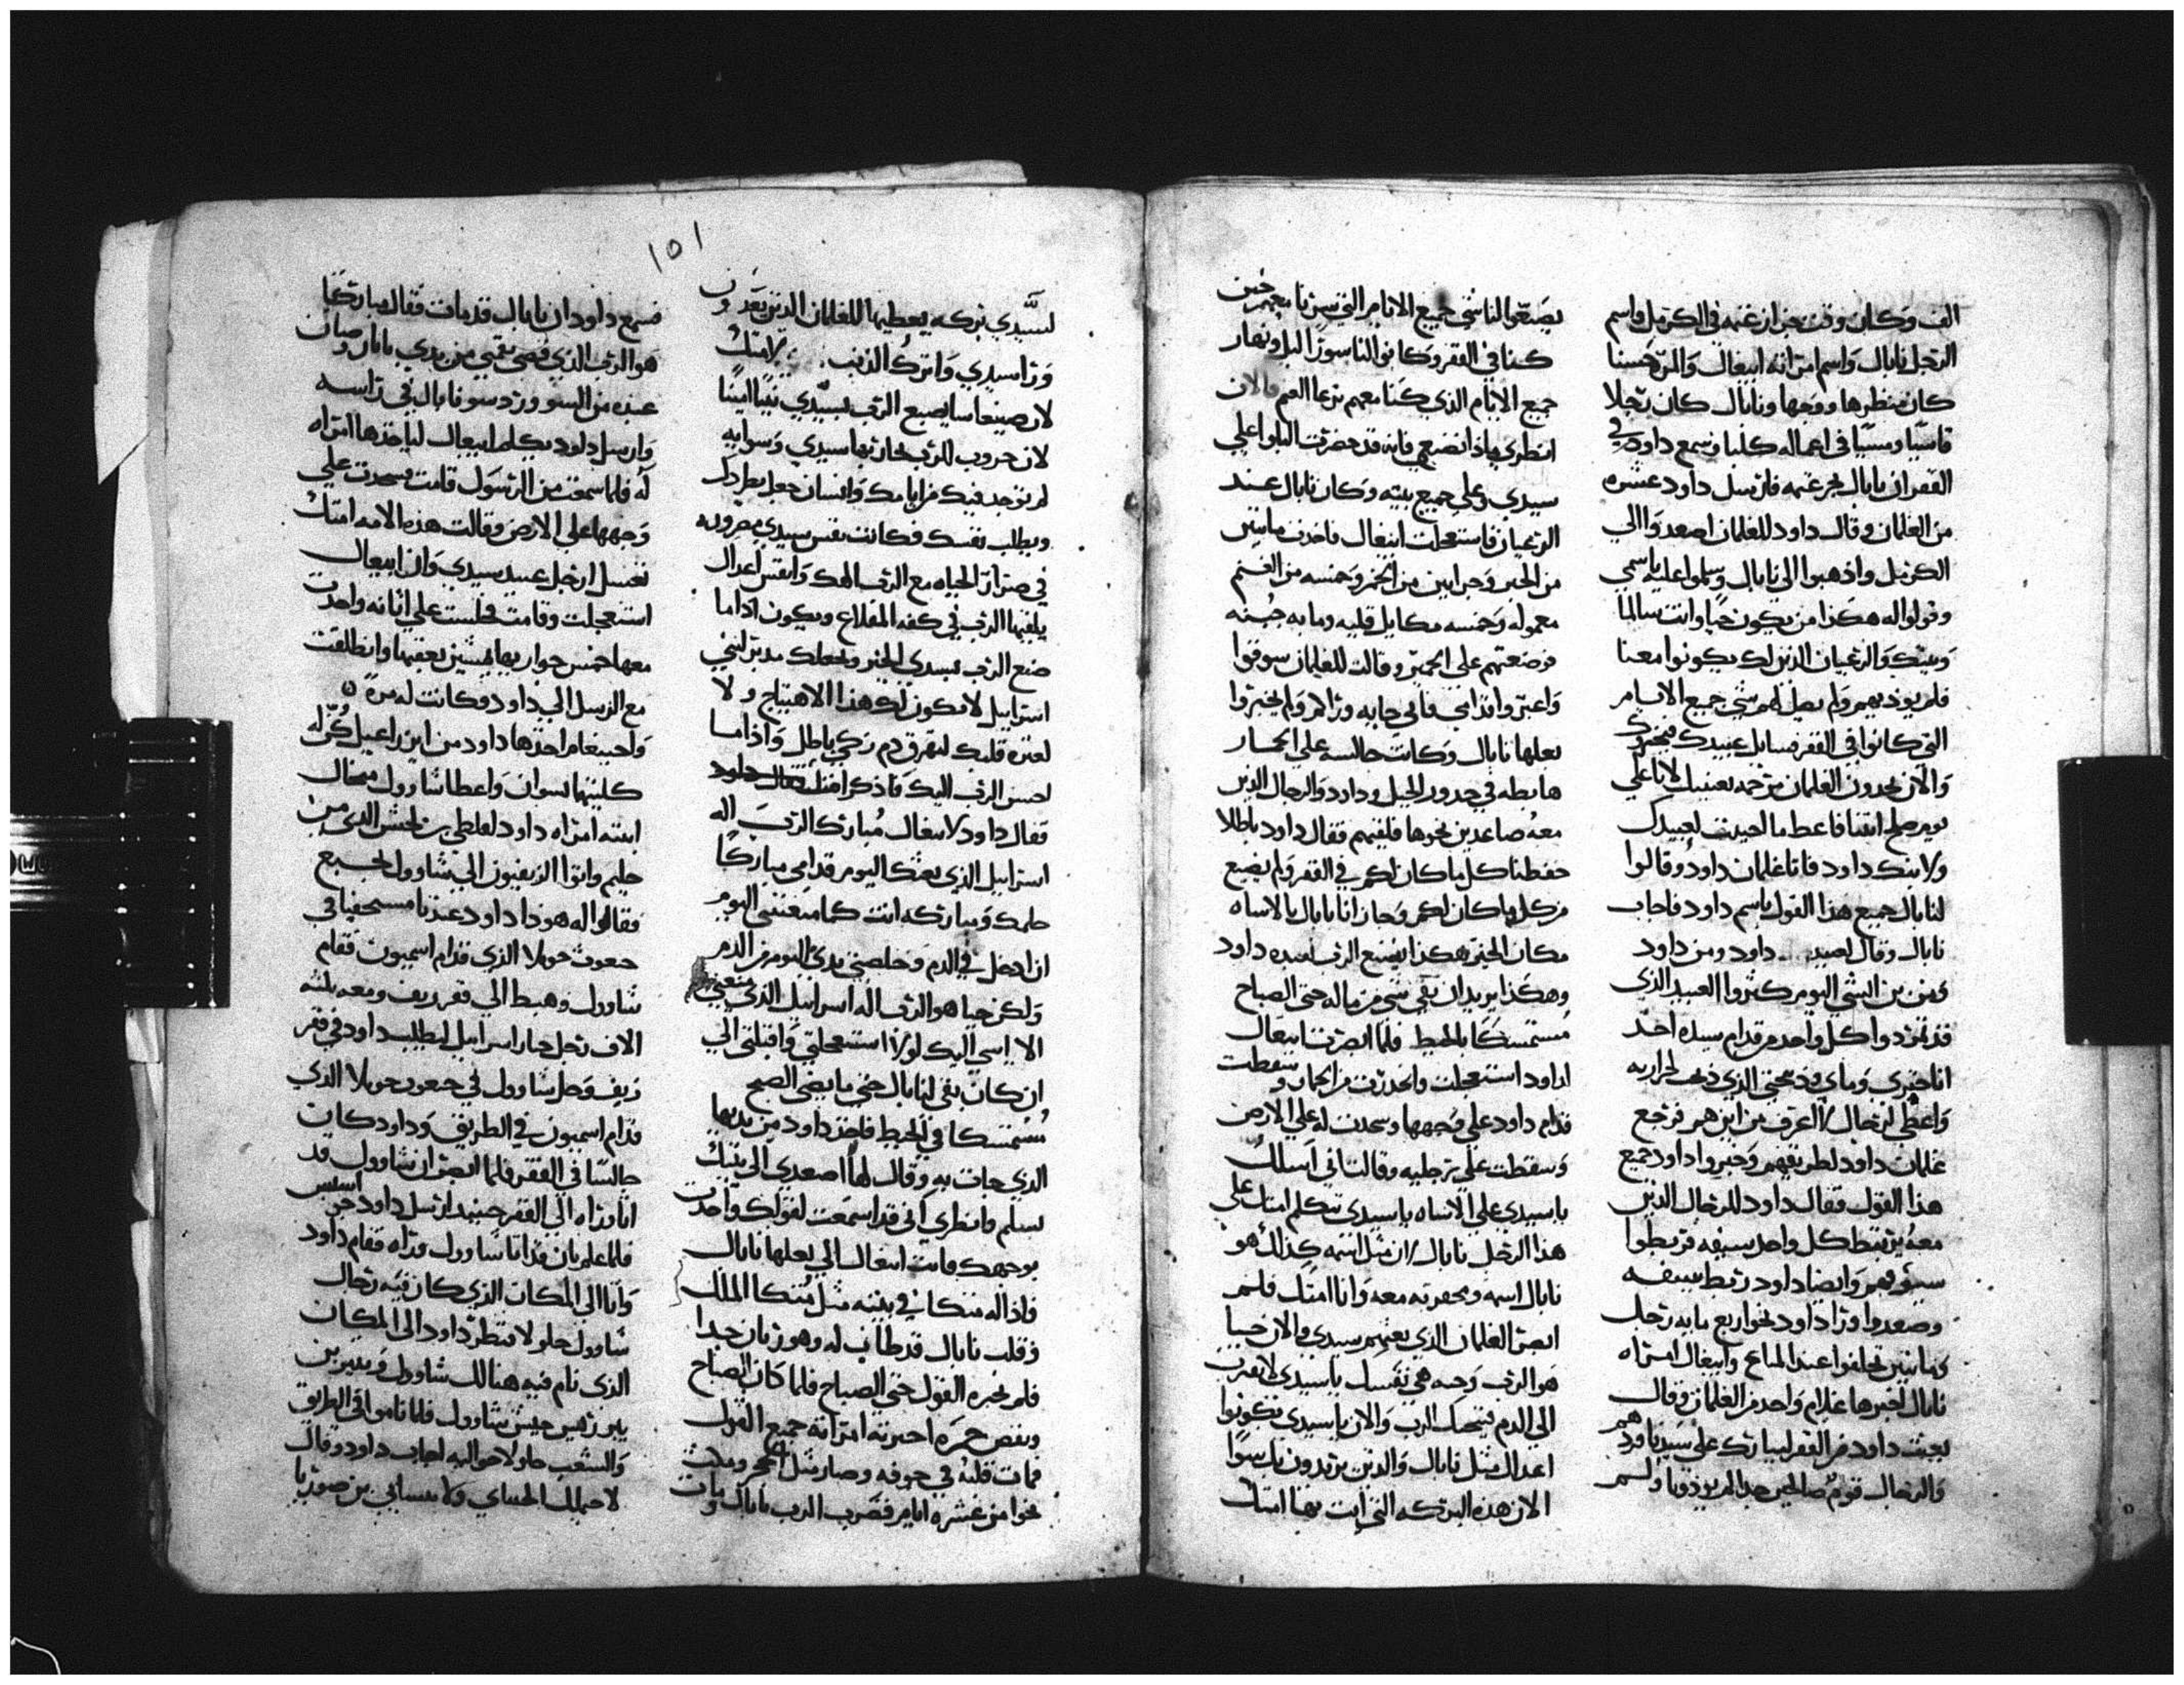 الف وكان وقت جزاز غنمه في الكرمل واسم
الرجل نابال واسم امراته ابيغال والمرة حسنا
كان منظرها ووجهها ونابال كان رجلا
قاسيا ومسيا في اعماله كلبا وسمع داود في
القفر ان نابال يجز غنمه فارسل داود عشره
من الغلمان وقال داود للغلمان اصعدوا الي
الكرمل واذهبوا الي نابال وسلموا عليه باسمي
وقولوا له هكذا من يكون حيا وانت سالما
وبيتك والرعيان الذين لك يكونوا معنا
فلم يوذيهم ولم يصل لهم شي جميع الايام
التي كانوا في القفر فسايل عبيدك فيخبروك
والان يجدون الغلمان رحمه بعينيك لانا علي
يوم صالح اتينا فاعط ما لحيت لعبيدك
ولابنك داود فاتا غلمان داود وقالوا
لنابال جميع هذا القول باسم داود فاجاب
نابال وقال لعبيد داود ومن داود
ومن بن ايشي اليوم كثروا العبيد الذي
قد تمردوا كل واحد من قدام سيده اخذ
انا خبزي وماي وذبحتي الذي ذبحت لجزازيه
واعطي لرجال لا اعرف من اين هم فرجع
غلمان داود لطريقهم وخبروا داود جميع
هذا القول فقال داود للرجال الذين
معه يرتبط كل واحد سيفه فربطوا
سيوفهم وايضا داود ربط سيفه
وصعدوا ورا داود نحو اربع مايه رجل
ومايتين تخلفوا عند المتاع وابيغال امراه
نابال اخبرها غلام واحد من الغلمان وقال
بعث داود من القفر ليبارك علي سيدنا فردهم
والرجال قوم صالحين جدا لم يوذونا ولم
يصيعوا لنا شي جميع الايام التي سرنا معهم حين
كنا في القفر وكانوا لنا سورا ليل ونهار
جميع الايام الذي كنا معهم نرعا الغنم والان
انظري ماذا تصنعي فانه قد حضرت البلوا علي
سيدي وعلي جميع بيته وكان نابال عند
الرعيان فاستعجلت ابيغال فاخذت مايتين
من الخبز وجرابين من الخمر وخمسه من الغنم
معموله وخمسه مكاييل قليه ومايه جبنه
فوضعتهم علي الحمير وقالت للغلمان سوقوا
واعبروا قدامي فاني جايه وراكم ولم يخبروا
بعلها نابال وكانت جالسه علي الحمار
هابطه في حدور الجبل وداود والرجال الذين
معه صاعدين نحوها فلقيهم فقال داود باطلا
حفظنا كل ما كان لكم في القفر ولم يضيع
من كل ما كان لكم وجازانا نابال بالاساه
مكان الخير هكذا يصنع الرب لعبده داود
وهكذا يزيد ان بقي شي من ماله حتي الصباح
مستمسكا بالحيط فلما ابصرت ابيغال
لداود استعجلت وانحدرت من الحمار وسقطت
قدام داود علي وجهها وسجدت له علي الارض
وسقطت علي رجليه وقالت اني اسلك
يا سيدي علي الاساه يا سيدي تتكلم امتك علي
هذا الرجل نابال لان مثل اسمه كذلك هو
نابال اسمه ومحقرته معه وانا امتك فلم
ابصر الغلمان الذي بعثهم سيدي والان حيا
هو الرب وحيه هي نفسك يا سيدي لا تقرب
الي الدم فينجيك الرب والان يا سيدي يكونوا
اعداك مثل نابال والذين يريدون بك سوا
الان هذه البركه التي اتت بها امتك
١٥١
لسيدي بركه يعطيها للغلمان الذين يعدون
ورا سيدي واترك الذنب لامتك
لان صنيعا سايصيع الرب لسيدي بيتا امينا
لان حروب للرب يحاربها سيدي وسوايه
لم توجد فيك من ايامك وانسان جعل يطردك
ويطلب نفسك فكانت نفس سيدي مصروره
في صرار الحياه مع الرب الهك وانفس اعداك
يلقيها الرب في كفه المقلاع ويكون اذا ما
صنع الرب بسيدي الخير ويجعلك مدبر لبني
اسراييل لا يكون لك هذا الاهتياج ولا
لعثره قلبك لتهرق دم زكي باطل واذا ما
احسن الرب اليك فاذكر امتك
فقال داود لابيغال مبارك الرب اله
اسراييل الذي بعثك اليوم قدامي مباركا
حلمك ومباركه انت كما منعتني اليوم
ان ادخل في الدم وخلصني يدي اليوم من الدم
ولكن حيا هو الرب اله اسراييل الذي منعني
الا اسي اليك لولا استعجلتي واقبلتي الي
ان كان بقي لنابال حتي ما يضي الصبح
مستمسكا في الحيط فاخذ داود من يديها
الذي جات به وقال لها اصعدي الي بيتك
بسلم وانظري اني قد اسمعت لقولك واخذت
بوجهك فاتت ابيغال الي بعلها نابال
فاذا له متكا في بيته مثل متكا الملك
وقلب نابال قد طاب له وهو ريان جدا
فلم تخبره القول حتي الصباح فلما كان الصباح
ونفض خمره اخبرته امراته جميع القول
فمات قلبه في جوفه وصار مثل الحجر ومكث
نحوا من عشره ايام فضرب الرب نابال ومات
فسمع داود ان نابال قد مات فقال مباركا
هو الرب الذي قضي نقمتي من يدي نابال وصان
عبده من السو ورد سو نابال في راسه
وارسل داود يكلم ابيغال لياخذها امراه
له فلما سمعت من الرسول قامت فسجدت علي
وجهها علي الارض وقالت هذه الامه امتك
تغسل ارجل عبيد سيدي وان ابيغال
استعجلت وقامت فجلست علي اتانه واخذت
معها خمس جواريها يمشين بعقبها وانطلقت
مع الرسل الي داود فكانت له مره
واحيينعام اخذها داود من ايزراعيل كن له
كليتهما نسوان واعطا شاوول ميخال
ابنته امراه داود لفلطي بن لحيش الذي من
جليم واتوا الزيفيون الي شاوول لجبع
فقالوا له هوذا داود عندنا مستخفيا في
جعوث حويلا الذي قدام اسيمون فقام
شاوول وهبط الي قفر زيف ومعه ثلثه
الاف رجل جبار اسراييل ليطلب داود في قفر
زيف وحل شاوول في جعوث حويلا الذي
قدام اسيمون في الطريق وداود كان
جالسا في القفر فلما ابصر ان شاوول قد
اتا وراه الي القفر حينيد ارسل داود
فلما علم بان قد اتا شاوول وراه فقام داود
واتا الي المكان الذي كان فيه رجال
شاوول حلولا فنظر داود الي المكان
الذي نام فيه هنالك شاوول وابنير بن
نير رييس جيش شاوول فلما ناموا في الطريق
والشعب حلولا حواليه اجاب داود وقال
لاحيملك الحتاي ولابيساي بن صوريا